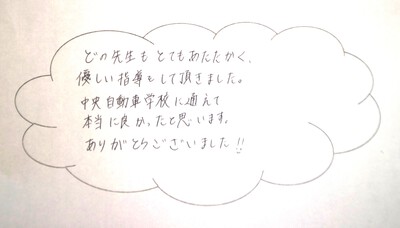 どの先生もとてもあたたかく、
優しい指導をして頂きました。
中央自動車学校に通えて
本当に良かったと思います。
ありがとうございました!!